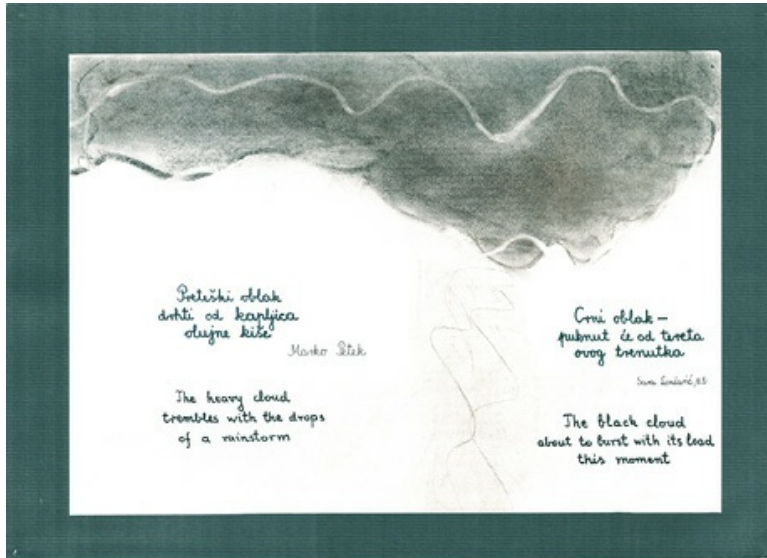 Preteški oblak
drhti od kapljica
olujne kiše
Marko Petek
The heavy cloud
trembles with the drops
of a rainstorm
Crni oblak –
puknut će od tereta
ovog trenutka
Sara
The black cloud
about to burst with its load
this moment